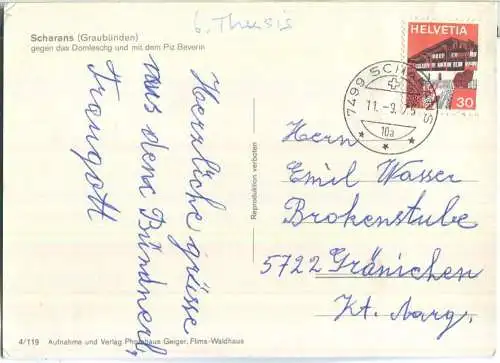 b. Thusis
Scharans (Graubünden)
gegen das Domleschg und mit dem Piz Beverin
HELVETIA
30
7499 SCH
11.-9.
10a
Herzliche grüsse
aus dem Bündnerl,
Trangott
Reproduktion verboten
Herrn
Emil Wasser
Brokenstube
5722 Gränichen
Kt. Aarg.
4/119 Aufnahme und Verlag Photohaus Geiger, Flims-Waldhaus